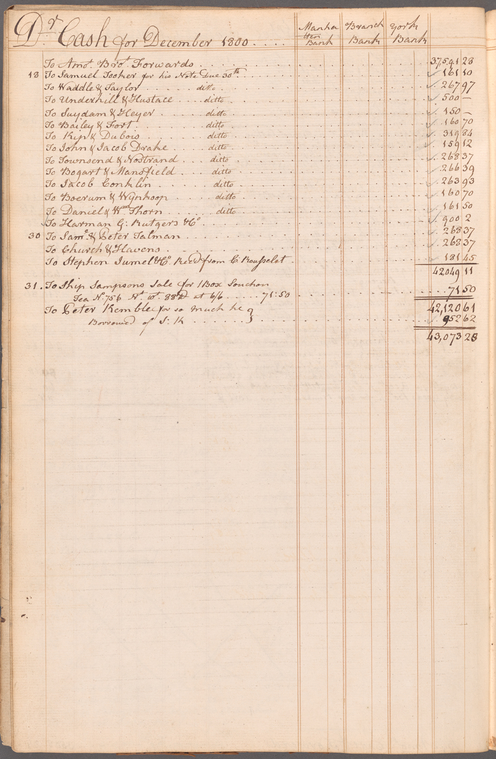 Dr Cash for December 1800 .... Manhattan Bank Branch Bank York Bank
To Amot. Bro't Forwards 37541 28
18 To Samuel Tooker for his Note Due 30th 161 10
To Waddle & Taylor ditto 267 97
To Underhill & Hustace ditto 500 —
To Suydam & Heyer ditto 150 —
To Bailey & Fort ditto 160 70
To Kip & Dubois ditto 319 84
To John & Jacob Drake ditto 159 12
To Townsend & Nostrand ditto 268 37
To Bogart & Mansfield ditto 266 39
To Jacob Conklin ditto 263 93
To Boerum & Wynkoop ditto 160 70
To Daniel & Wm Thorn ditto 161 50
To Harman G. Rutgers & Co 900 2
30 To Saml. & Peter Talman 268 37
To Church & Havens 268 37
To Stephen Jumel & Co. Recd from C Rousselet 181 45
42049 11
31. To Ship Sampsons Sale for 1 Box Souchon
Tea No. 756 at 6/6 71:50 71 50
42,120 61
To Peter Kemble for so much he
Borrowed of 952 62
43,073 23